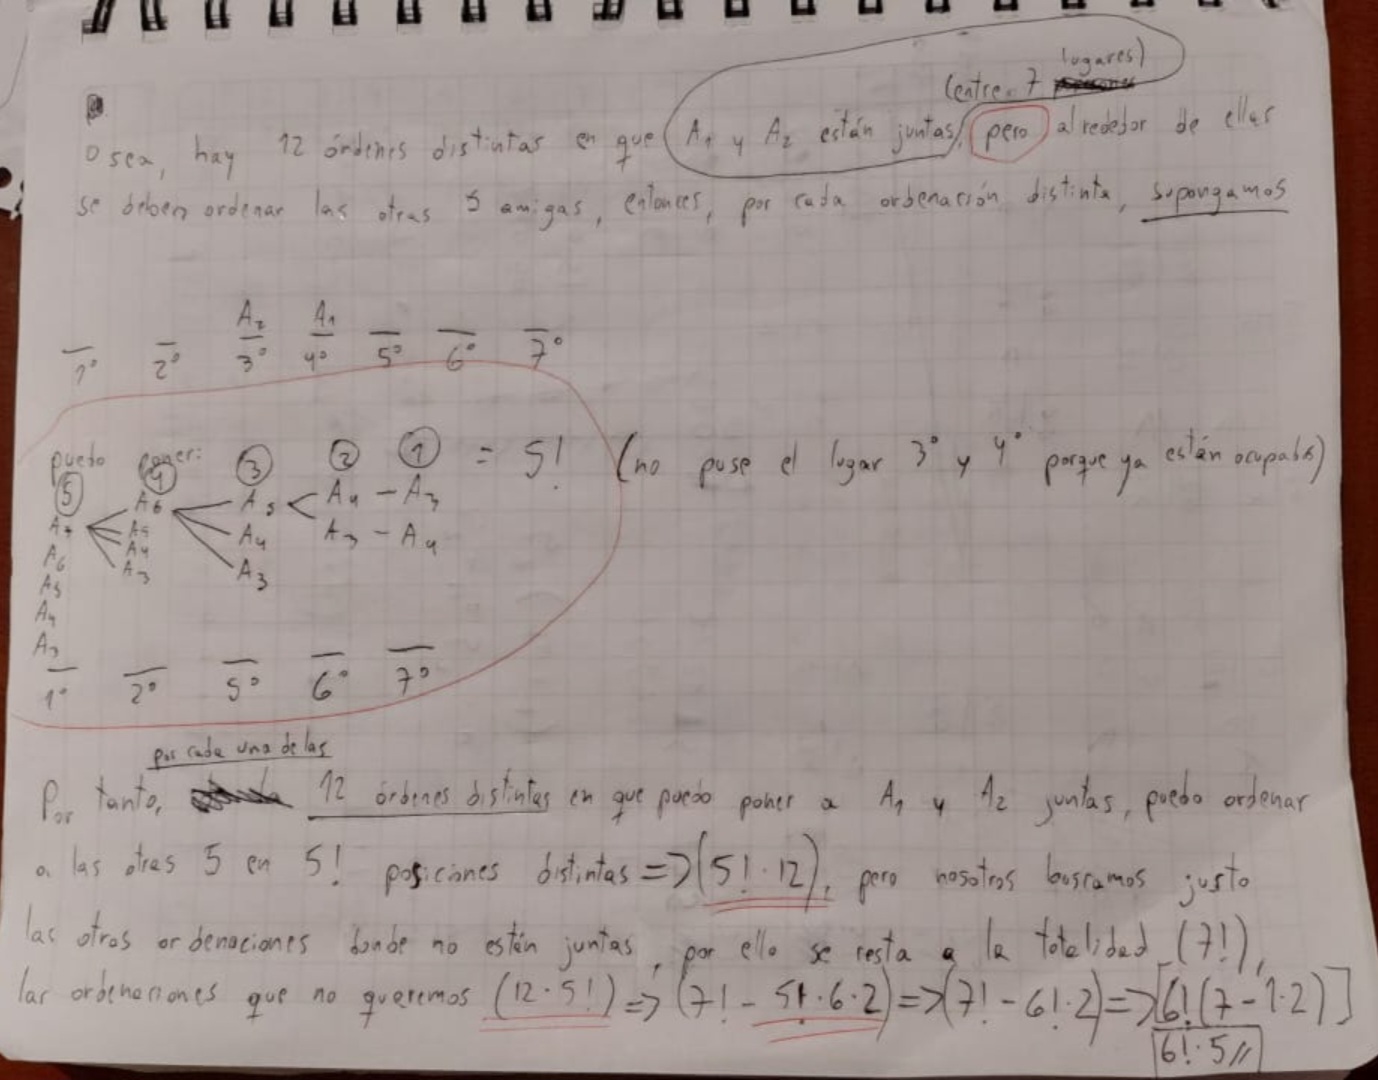 lugares)
(entre 7
Osea, hay 12 órdenes distintas en que A₁ y A₂ están juntas, pero alrededor de ellas
se deben ordenar las otras 5 amigas, entonces, por cada ordenación distinta, supongamos
A₂ A₁
1° 2° 3° 4° 5° 6° 7°
puedo poner: ③ ② ① = 5! (no puse el lugar 3° y 4° porque ya están ocupados)
⑤ ④
A₇ A₆ A₅ A₄ - A₃
A₆ A₅ A₄ A₃ - A₄
A₅ A₄ A₃
A₄ A₃
A₃
1° 2° 5° 6° 7°
por cada una de las
Por tanto, 12 órdenes distintas en que puedo poner a A₁ y A₂ juntas, puedo ordenar
a las otras 5 en 5! posiciones distintas => (5! · 12), pero nosotros buscamos justo
las otras ordenaciones donde no están juntas, por ello se resta a la totalidad (7!),
las ordenaciones que no queremos (12 · 5!) => (7! - 5! · 6 · 2) => (7! - 6! · 2) => [6! (7 - 1 · 2)]
6! · 5 //